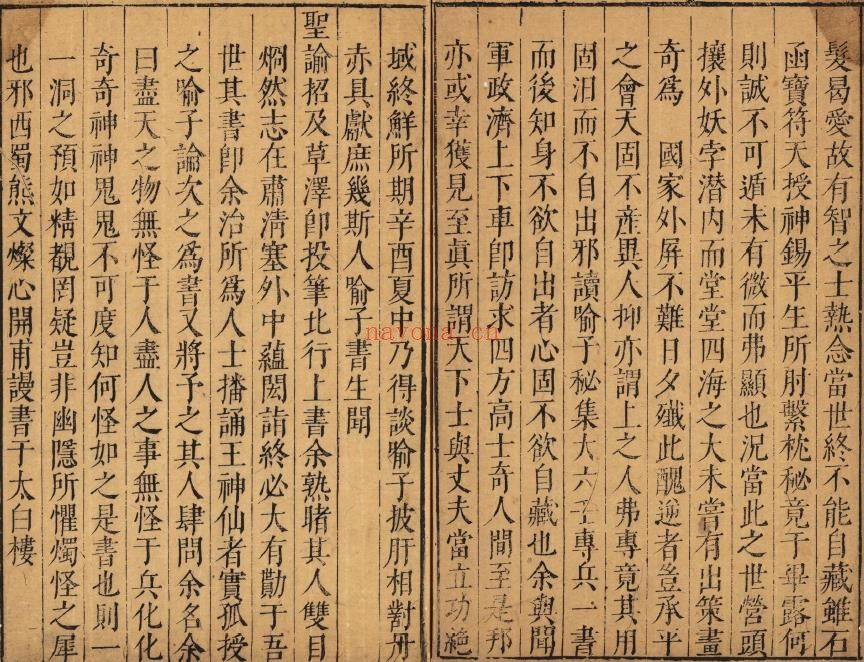 髮曷愛故有智之士熱念當世終不能自藏雖石
函寶符天授神錫平生所肘繫枕秘竟于畢露何
則誠不可遁未有微而弗顯也況當此之世營頭
攘外妖孛潛內而堂堂四海之大未嘗有出策畫
奇為 國家外屏不難日夕殲此醜逆者豈承平
之會天固不產異人抑亦謂上之人弗專竟其用
固汨而不自出邪讀喻子秘集大六壬專兵一書
而後知身不欲自出者心固不欲自藏也余與聞
軍政濟上下車卽訪求四方高士奇人間至是邦
亦或幸獲見至眞所謂天下士與丈夫當立功絶
域終鮮所期辛酉夏中乃得談喻子披肝相對丹
赤具獻庶幾斯人喻子書生聞
聖諭招及草澤卽投筆北行上書余熟睹其人雙目
烱然志在肅淸塞外中蘊閎詣終必大有勳于吾
世其書卽余治所為人士播誦王神仙者實孤授
之喻子論次之為書又將予之其人肆問余名余
曰盡天之物無怪于人盡人之事無怪于兵化化
奇奇神神鬼鬼不可度知何怪如之是書也則一
一洞之預如精覩罔疑豈非幽隱所懼燭怪之犀
也邪西蜀熊文燦心開甫謾書于太白樓
nayona.cn